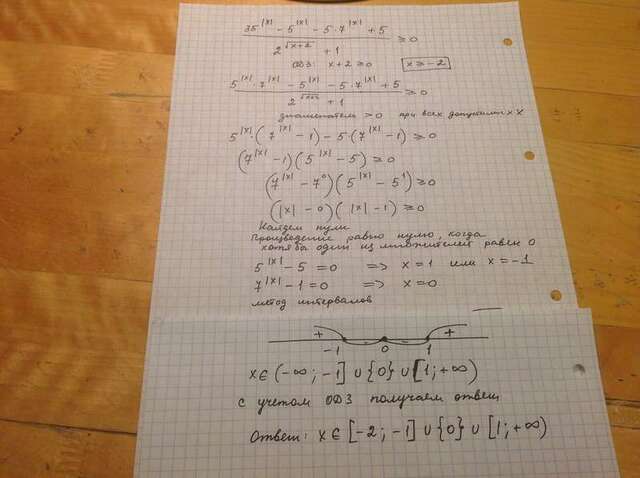 (35^|x| - 5^|x| - 5·7^|x| + 5) / (2^√(x+2) + 1) ≥ 0
ОДЗ: x+2 ≥ 0 x ≥ -2
(5^|x|·7^|x| - 5^|x| - 5·7^|x| + 5) / (2^√(x+2) + 1) ≥ 0
знаменатель > 0 при всех допустимых x
5^|x|·(7^|x| - 1) - 5·(7^|x| - 1) ≥ 0
(7^|x| - 1)(5^|x| - 5) ≥ 0
(7^|x| - 7^0)(5^|x| - 5^1) ≥ 0
(|x| - 0)(|x| - 1) ≥ 0
Найдем нули
Произведение равно нулю, когда
хотя бы один из множителей равен 0
5^|x| - 5 = 0 => x = 1 или x = -1
7^|x| - 1 = 0 => x = 0
метод интервалов
+ - - +
-1 0 1
x ∈ (-∞; -1] ∪ {0} ∪ [1; +∞)
с учетом ОДЗ получаем ответ
Ответ: x ∈ [-2; -1] ∪ {0} ∪ [1; +∞)